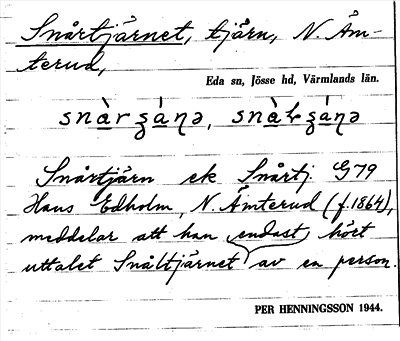 Snårtjärnet, tjärn, N. Äm-
terud,
Eda sn, Jösse hd, Värmlands län.
Snårtjärn ek Snårtj. G79
Hans Edholm, N. Ämterud (f. 1864),
meddelar att han endast hört
uttalet Snåltjärnet av en person.
PER HENNINGSSON 1944.